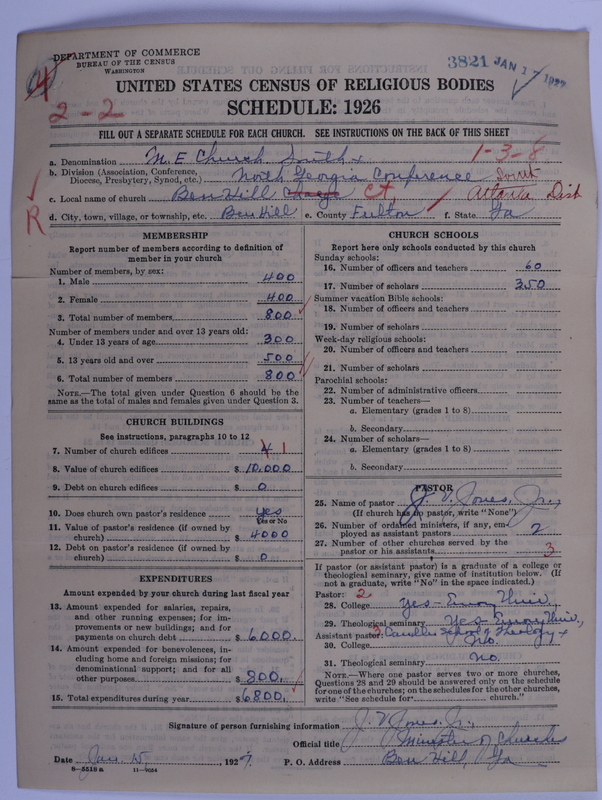 DEPARTMENT OF COMMERCE
BUREAU OF THE CENSUS
WASHINGTON
4
3821 JAN 17 1927
2-2
UNITED STATES CENSUS OF RELIGIOUS BODIES
SCHEDULE: 1926
FILL OUT A SEPARATE SCHEDULE FOR EACH CHURCH. SEE INSTRUCTIONS ON THE BACK OF THIS SHEET
a. Denomination M. E. Church South 1-3-8
b. Division (Association, Conference, Diocese, Presbytery, Synod, etc.) North Georgia Conference South
c. Local name of church Ben Hill Charge Atlanta Dist
d. City, town, village, or township, etc. Ben Hill e. County Fulton f. State Ga
R
MEMBERSHIP
Report number of members according to definition of
member in your church
Number of members, by sex:
1. Male 400
2. Female 400
3. Total number of members 800
Number of members under and over 13 years old:
4. Under 13 years of age 300
5. 13 years old and over 500
6. Total number of members 800
NOTE.—The total given under Question 6 should be
same as the total of males and females given under Question 3.
CHURCH BUILDINGS
See instructions, paragraphs 10 to 12
7. Number of church edifices 4 1
8. Value of church edifices $ 10,000
9. Debt on church edifices $ 0
10. Does church own pastor's residence yes
Yes or No
11. Value of pastor's residence (if owned by
church) $ 4000
12. Debt on pastor's residence (if owned by
church) $ 0
EXPENDITURES
Amount expended by your church during last fiscal year
13. Amount expended for salaries, repairs,
and other running expenses; for im-
provements or new buildings; and for
payments on church debt $ 6000.
14. Amount expended for benevolences, in-
cluding home and foreign missions; for
denominational support; and for all
other purposes $ 800.
15. Total expenditures during year $ 6800.
CHURCH SCHOOLS
Report here only schools conducted by this church
Sunday schools:
16. Number of officers and teachers 60
17. Number of scholars 350
Summer vacation Bible schools:
18. Number of officers and teachers
19. Number of scholars
Week-day religious schools:
20. Number of officers and teachers
21. Number of scholars
Parochial schools:
22. Number of administrative officers
23. Number of teachers—
a. Elementary (grades 1 to 8)
b. Secondary
24. Number of scholars—
a. Elementary (grades 1 to 8)
b. Secondary
PASTOR
25. Name of pastor J. V. Jones, Jr.,
(If church has no pastor, write "None")
26. Number of ordained ministers, if any, em-
ployed as assistant pastors 2
27. Number of other churches served by the
pastor or his assistants 3
If pastor (or assistant pastor) is a graduate of a college or
theological seminary, give name of institution below. (If
not a graduate, write "No" in the space indicated.)
Pastor: 2
28. College Yes - Emory Univ.
29. Theological seminary Yes - Emory Univ.,
Assistant pastor: Candler School of Theology
30. College No.
31. Theological seminary No.
NOTE.—Where one pastor serves two or more churches,
Questions 28 and 29 should be answered only on the schedule
for one of the churches; on the schedules for the other churches,
write "See schedule for church."
Signature of person furnishing information J. V. Jones, Jr.,
Official title Minister of Church
Date Jan. 15, 1927. P. O. Address Ben Hill, Ga
8—5518 a 11—9084